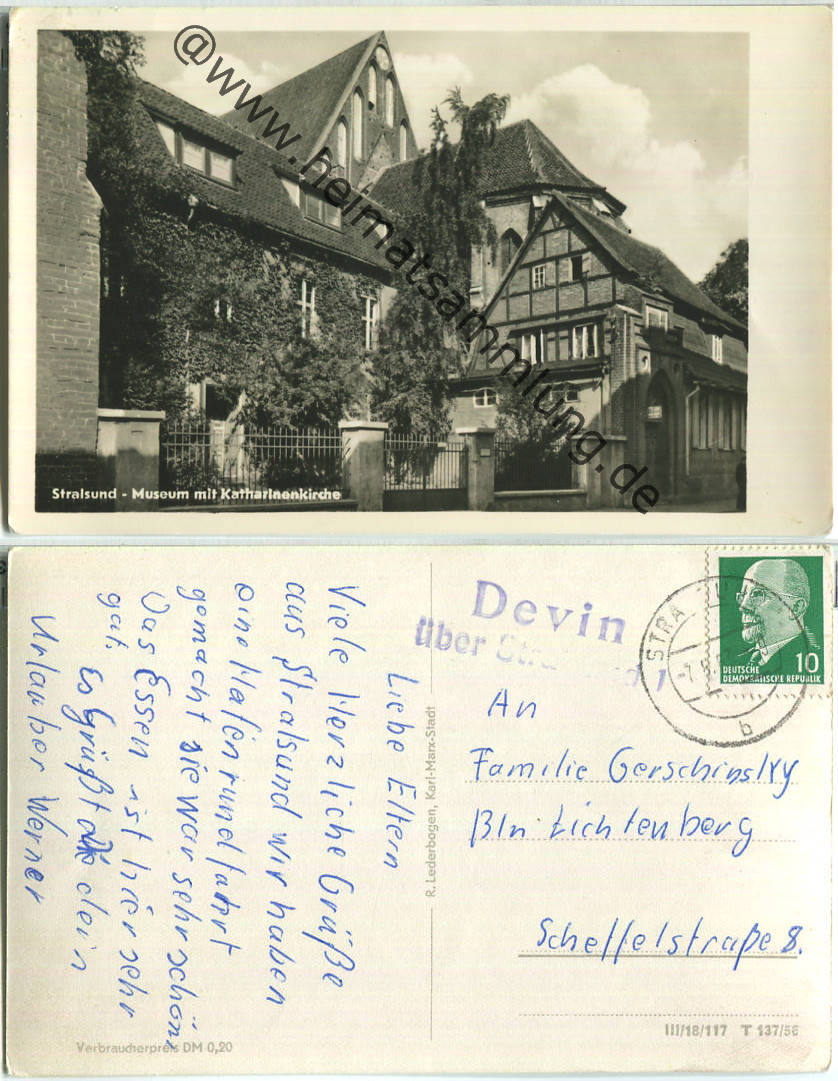 @www.heimatsammlung.de
Stralsund - Museum mit Katharinenkirche
Liebe Eltern
Viele Herzliche Grüße
aus Stralsund wir haben
eine Hafenrundfahrt
gemacht sie war sehr schön,
Das Essen ist hier sehr
gut. Es grüßt dein
Urlauber Werner
Verbraucherpreis DM 0,20
R. Lederbogen, Karl-Marx-Stadt
Devin
über Stralsund 1
STRALSUND
-7.
b
10
DEUTSCHE
DEMOKRATISCHE REPUBLIK
An
Familie Gerschinsky
Bln Lichtenberg
Scheffelstraße 8.
III/18/117 T 137/56